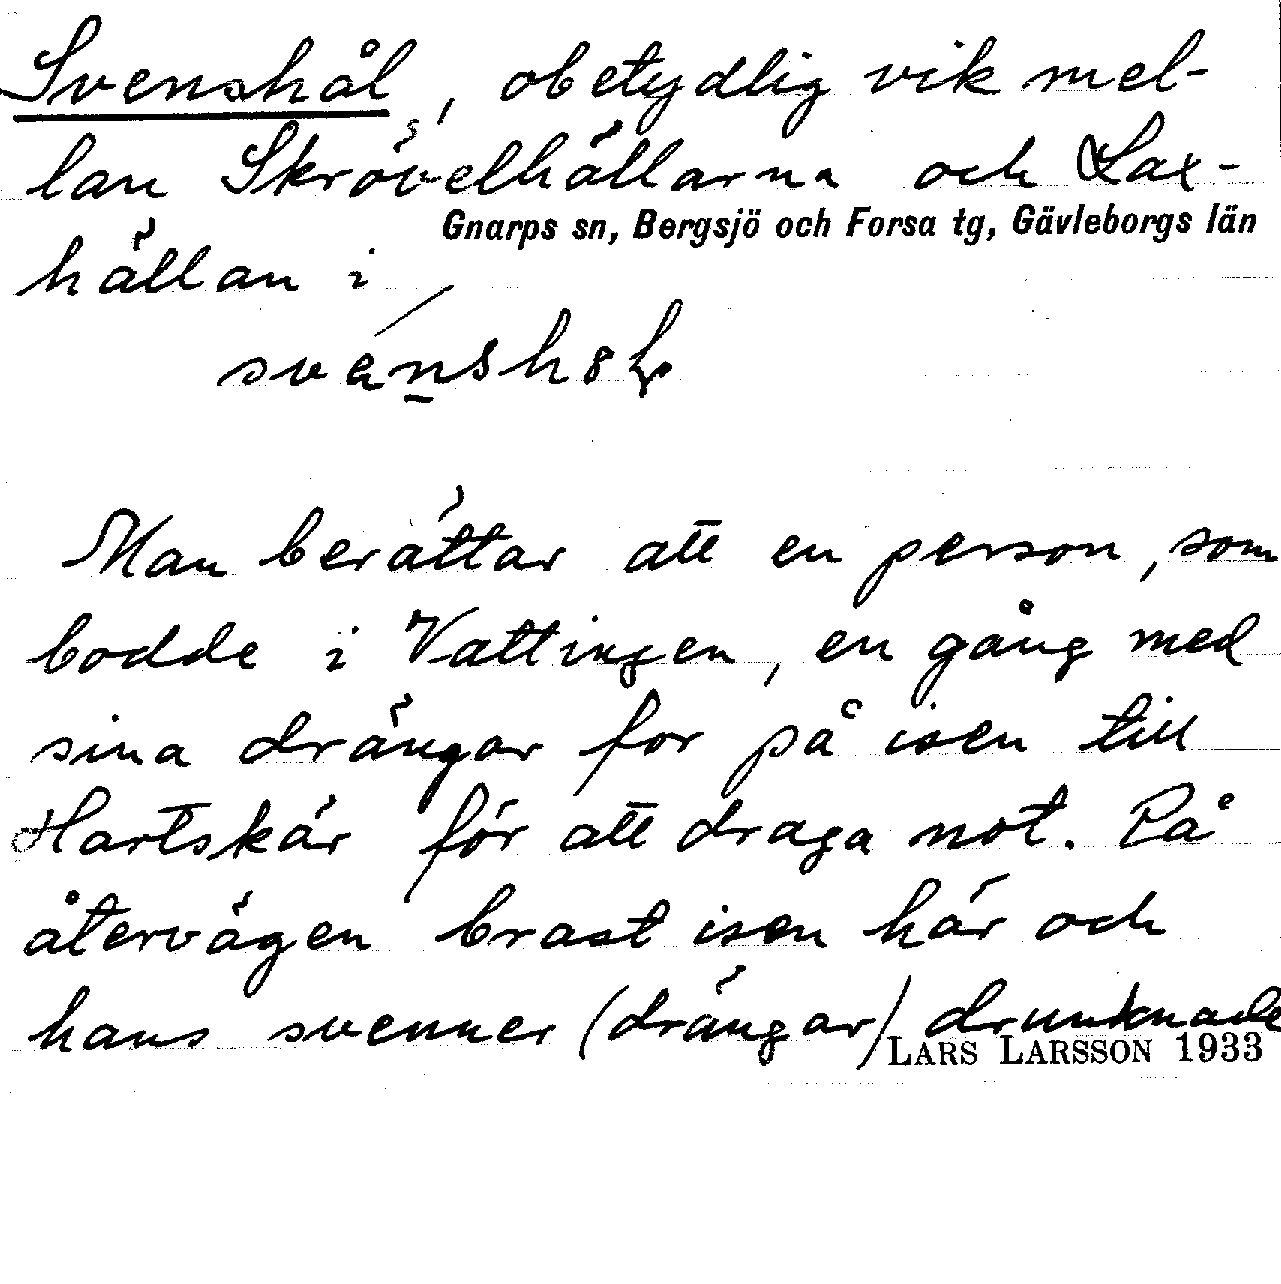 Svenshål, obetydlig vik mel-
lan Skrövelhällarna och Lax-
Gnarps sn, Bergsjö och Forsa tg, Gävleborgs län
hällan i
Man berättar att en person, som
bodde i Vattingen, en gång med
sina drängar for på isen till
Hartskär för att draga not. På
återvägen brast isen här och
hans svenner (drängar) drunknade
LARS LARSSON 1933